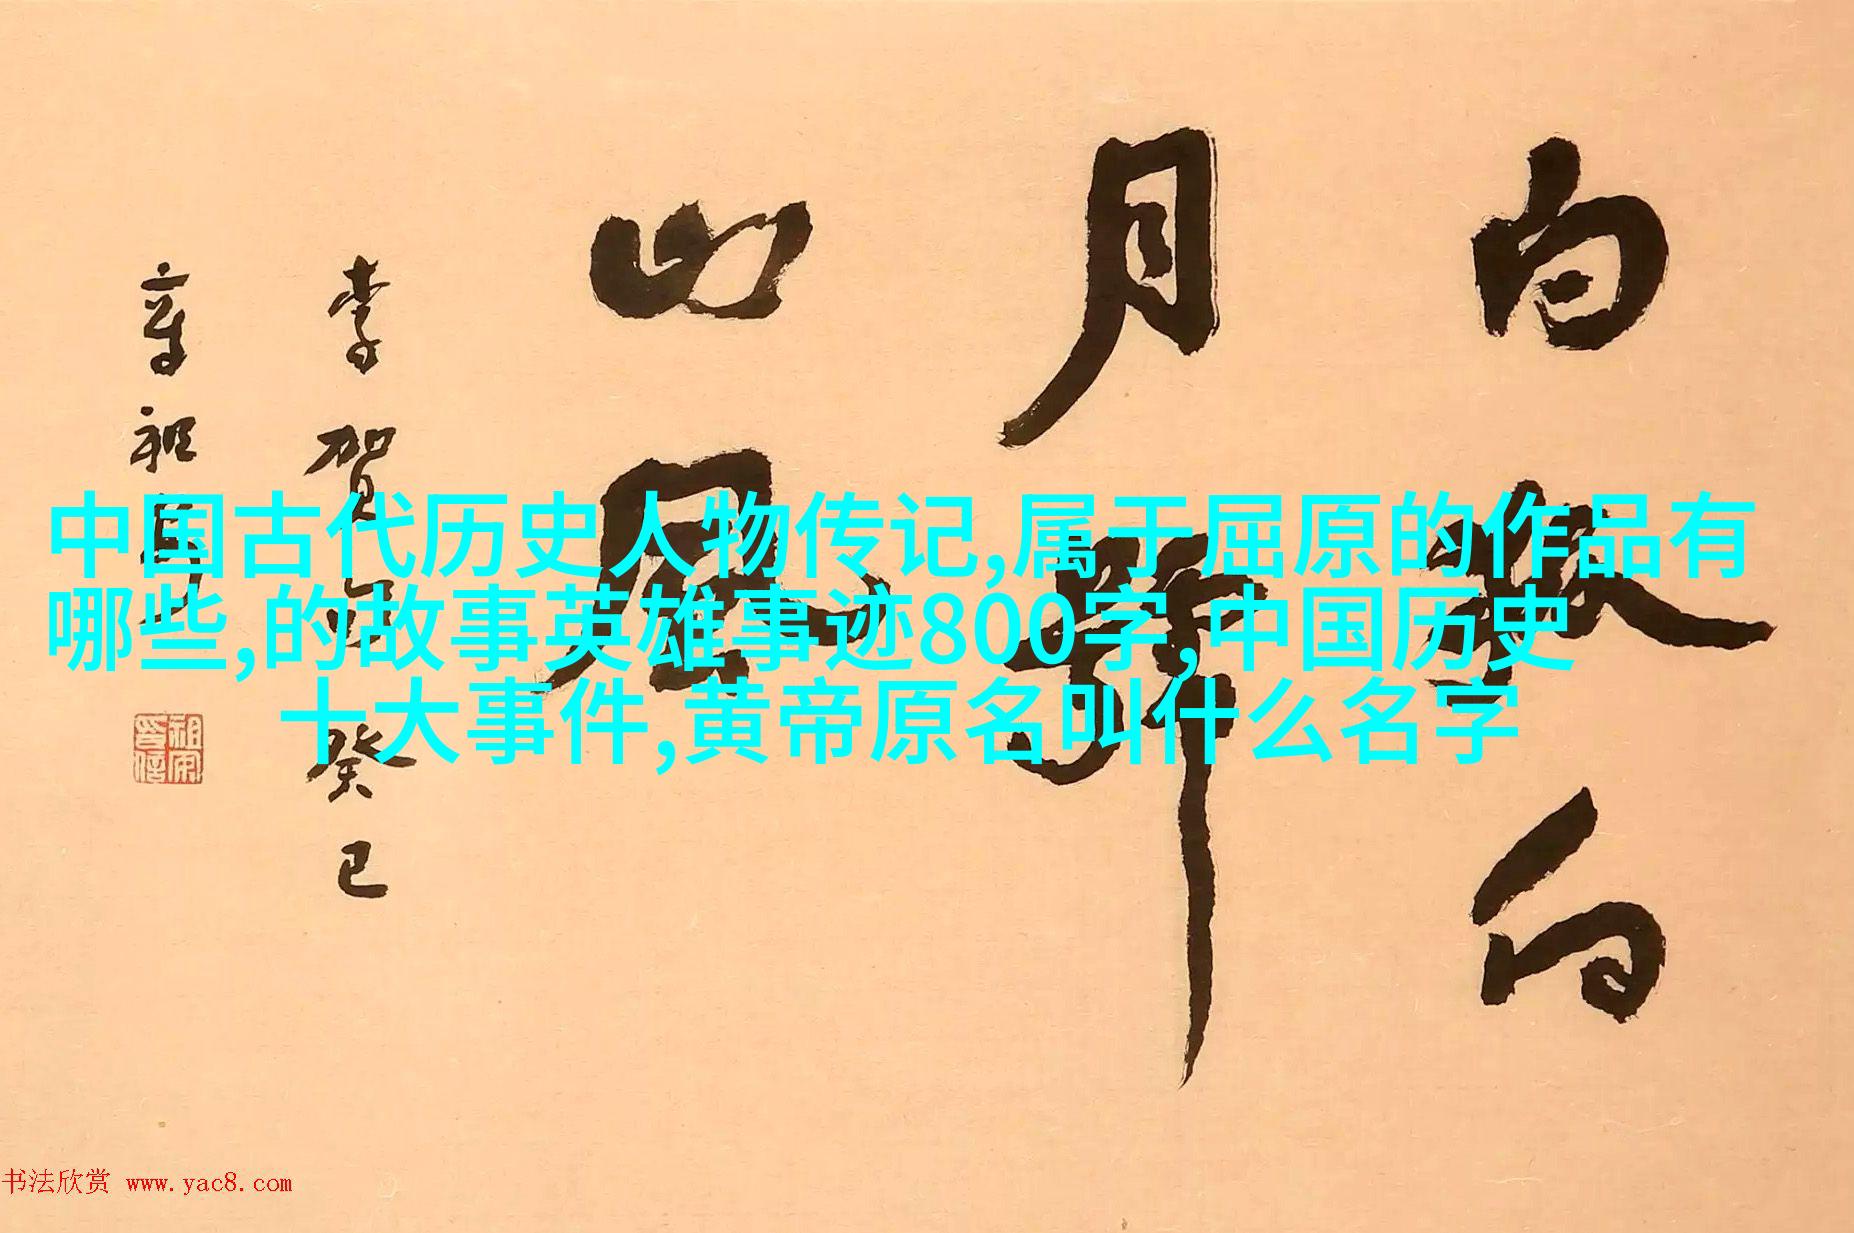 中国古代历史人物传记,属于屈原的作品有
哪些,的故事英雄事迹800字,中国历史
十大事件,黄帝原名叫什么名字
月
山
李賀句癸巳
章祖安
书法欣赏 www.yac8.com